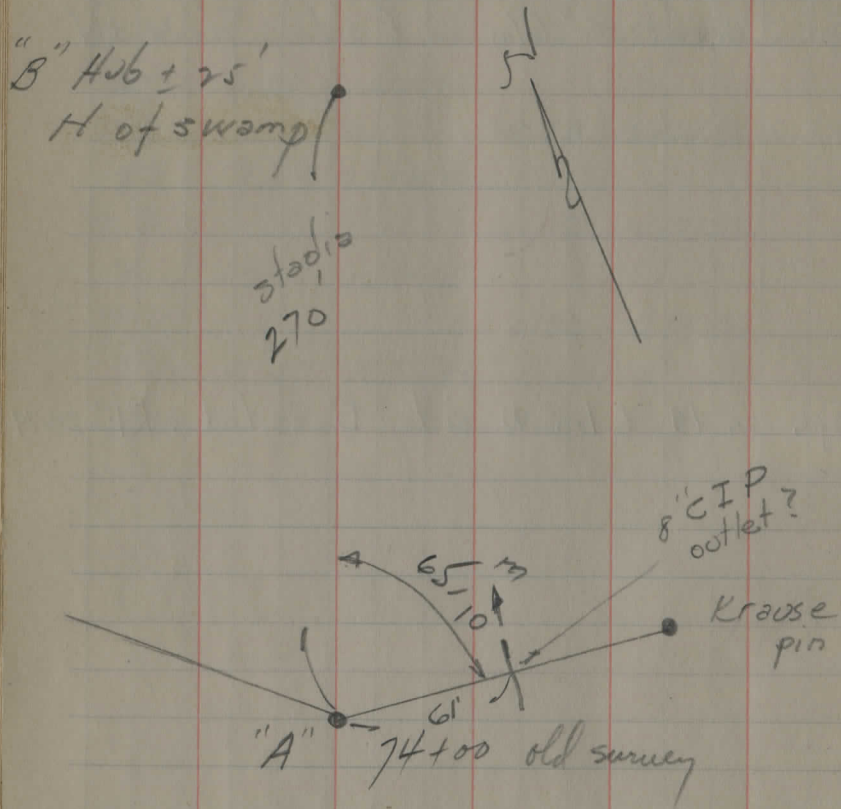 "B" Hub ± 25'
N of swamp
stadia
270
8" CIP
outlet?
65-10
Krause
pin
61'
"A" 74+00 old survey